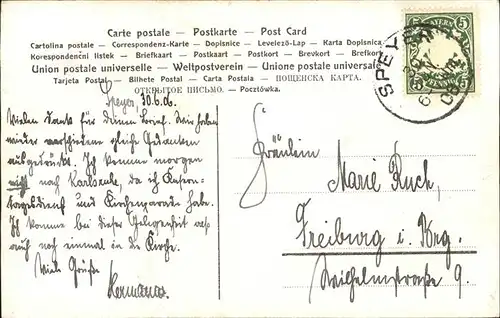 Carte postale - Postkarte - Post Card
Cartolina postale - Correspondenz-Karte - Dopisnice - Levelező-Lap - Karta Dopisnica
Korespondenční listek - Briefkaart - Postkaart - Postkort - Brevkort - Brefkort
Union postale universelle - Weltpostverein - Unione postale universale
Tarjeta Postal - Bilhete Postal - Carta Postala - ПОЩЕНСКА КАРТА.
ОТКРЫТОЕ ПИСЬМО. - Pocztówka.
BAYERN
5 5
SPEYER
Speyer, 30.6.06.
Vielen Dank für deinen Brief. Wir haben
wieder verschiedene gleiche Gedanken
ausgedrückt. Ich komme morgen
nicht nach Karlsruhe, da ich
und Kirchenparade habe.
Ich komme bei dieser Gelegenheit
auch noch einmal in die Kirche.
Viele Grüße
Hermann.
Fräulein
Marie Ruch,
Freiburg i. Brg.
Wilhelmstraße 9.